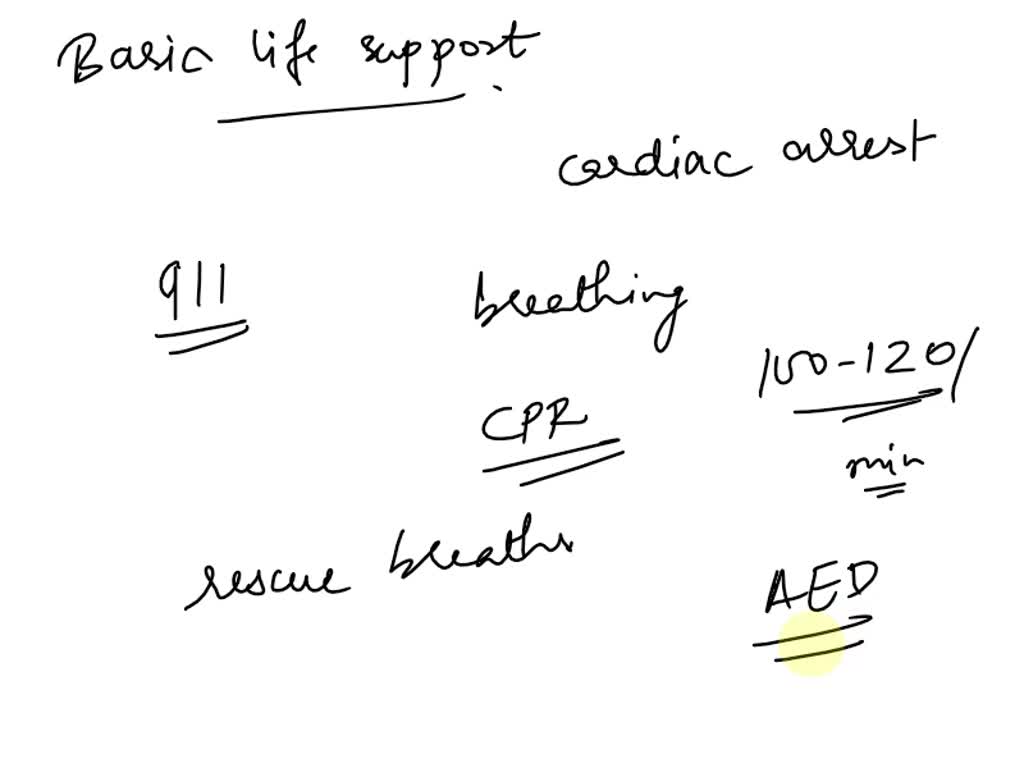 Basic life support
cardiac arrest
911
breathing
100-120/
min
CPR
rescue breaths
AED